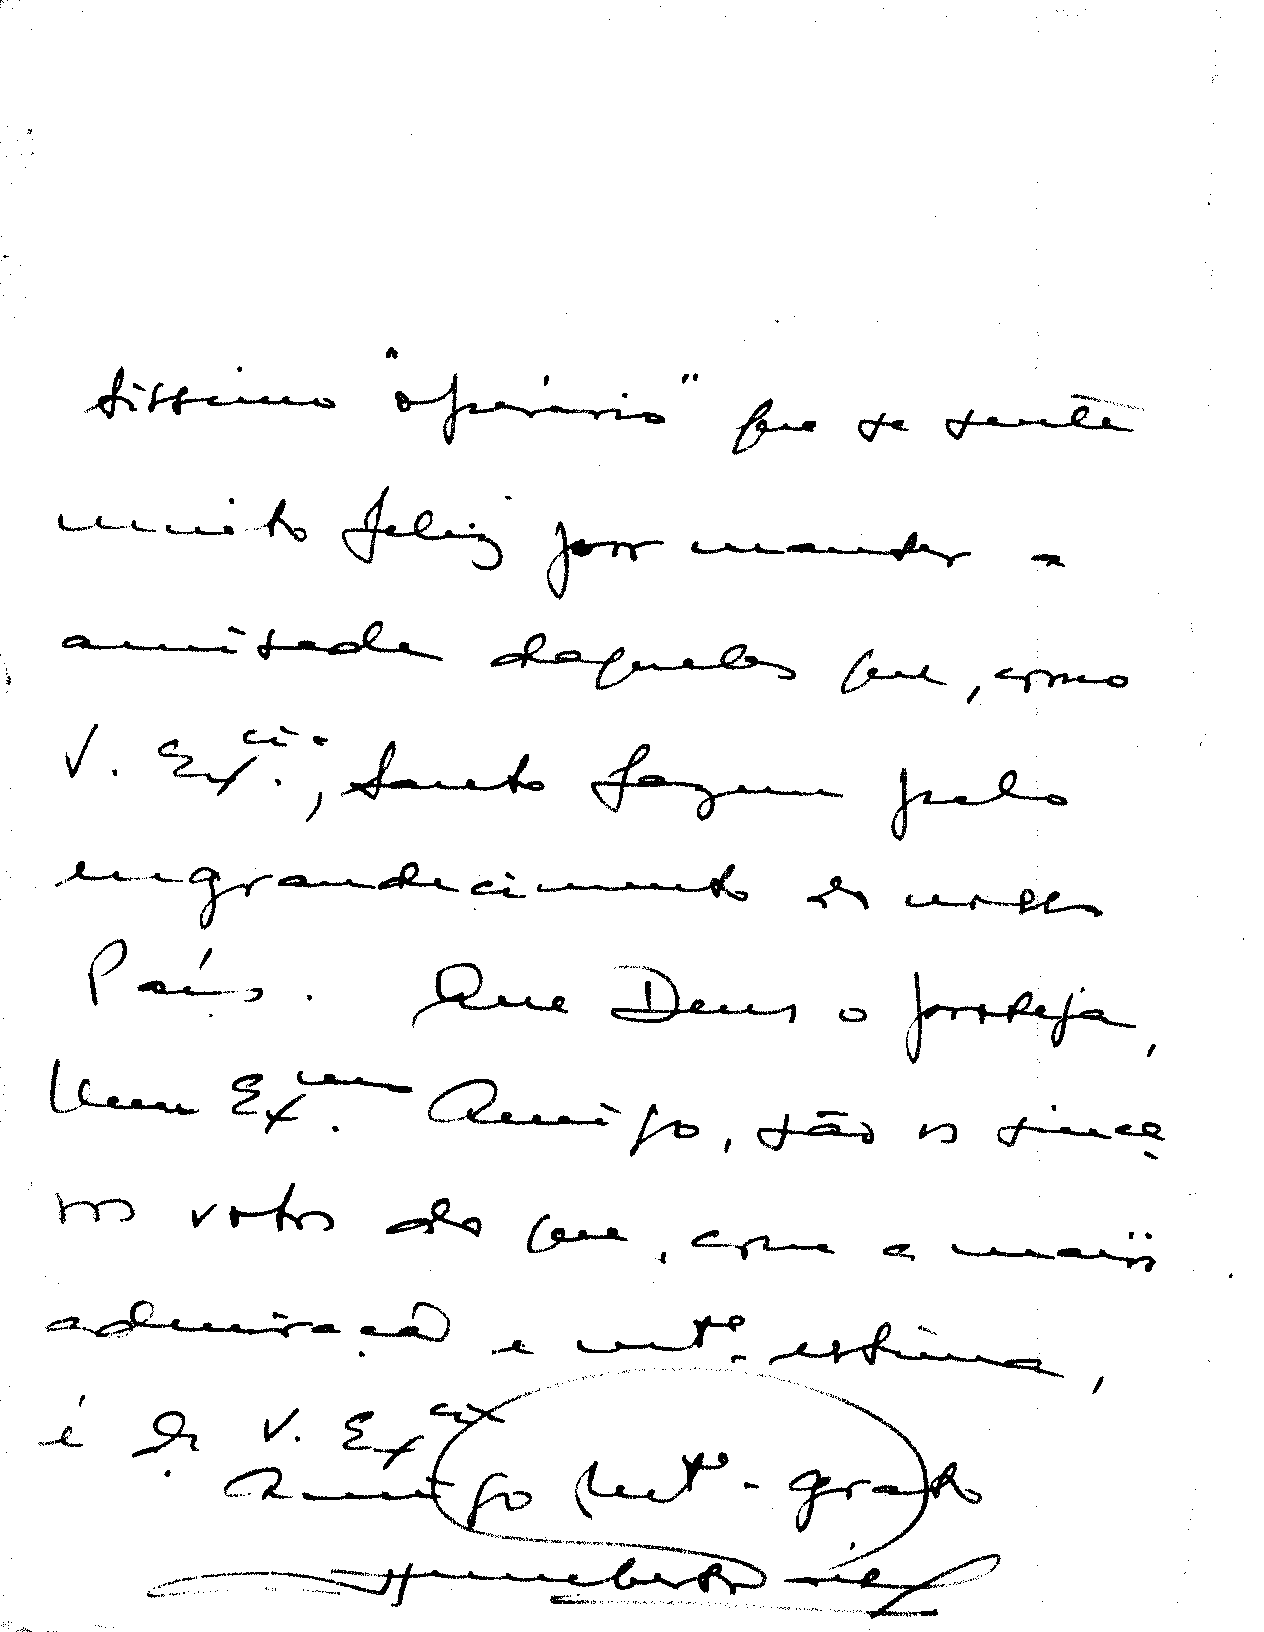 tíssimo "operário" que se sente
muito feliz por manter a
amizade daqueles que, como
V. Ex.cia, tanto fazem pelo
engrandecimento do nosso
País. Que Deus o proteja,
meu Ex.mo Amigo, são os since-
ros votos do que, com a maior
admiração e mt.º estima,
é de V. Ex.cia
Amigo mt.º grato
Humberto